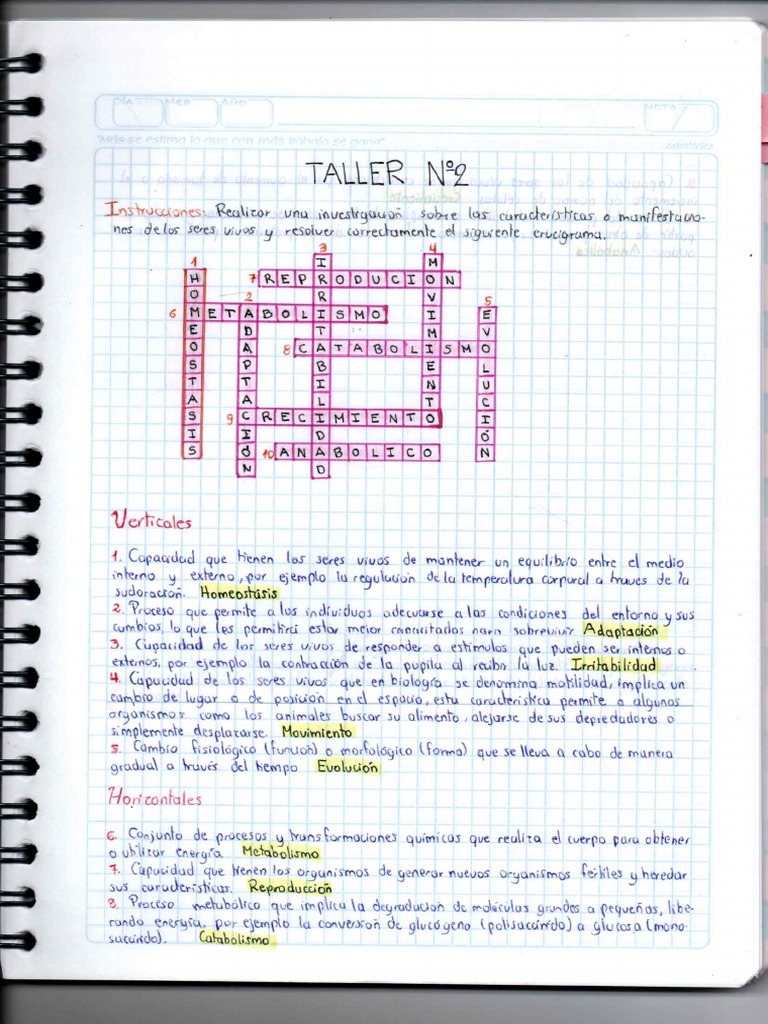 DIA MES AÑO NOTA
"Más se estima lo que con más trabajo se gana"
TALLER Nº2
Instrucciones: Realizar una investigación sobre las características o manifestacio-
nes de los seres vivos y resolver correctamente el siguiente crucigrama.
1 HOMEOSTASIS
2 ADAPTACIÓN
3 IRRITABILIDAD
4 MOVIMIENTO
5 EVOLUCIÓN
6 METABOLISMO
7 REPRODUCION
8 CATABOLISMO
9 CRECIMIENTO
10 ANABOLICO
Verticales
1. Capacidad que tienen los seres vivos de mantener un equilibrio entre el medio
interno y externo, por ejemplo la regulación de la temperatura corporal a traves de la
sudoración. Homeostásis
2. Proceso que permite a los individuos adecuarse a las condiciones del entorno y sus
cambios, lo que les permitirá estar mejor capacitados para sobrevivir. Adaptación
3. Capacidad de los seres vivos de responder a estímulos que pueden ser internos o
externos, por ejemplo la contracción de la pupila al recibir la luz. Irritabilidad
4. Capacidad de los seres vivos que en biología se denomina motilidad, implica un
cambio de lugar o de posición en el espacio, esta característica permite a algunos
organismos como los animales buscar su alimento, alejarse de sus depredadores o
simplemente desplazarse. Movimiento
5. Cambio fisiológico (función) o morfológico (forma) que se lleva a cabo de manera
gradual a través del tiempo Evolución
Horizontales
6. Conjunto de procesos y transformaciones químicas que realiza el cuerpo para obtener
o utilizar energía. Metabolismo
7. Capacidad que tienen los organismos de generar nuevos organismos fértiles y heredar
sus características. Reproducción
8. Proceso metabólico que implica la degradación de moléculas grandes a pequeñas, libe-
rando energía, por ejemplo la conversión de glucógeno (polisacárido) a glucosa (mono-
sacárido). Catabolismo